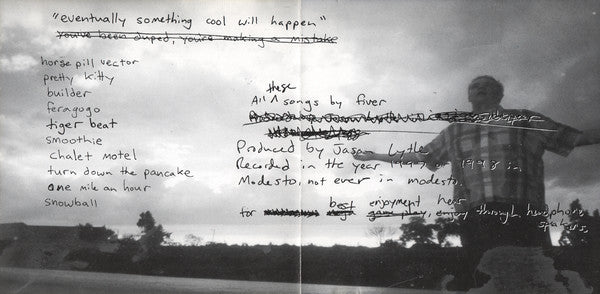 "eventually something cool will happen"
You've been duped, you're making a mistake
horse pill vector
pretty kitty
builder
feragogo
tiger beat
smoothie
chalet motel
turn down the pancake
one mile an hour
snowball
these
All ^ songs by fiver
Produced by Jason Lytle
Recorded in the year 1997 or 1998 in
Modesto, not ever in modesto.
best enjoyment hear
for game play, enjoy through headphone